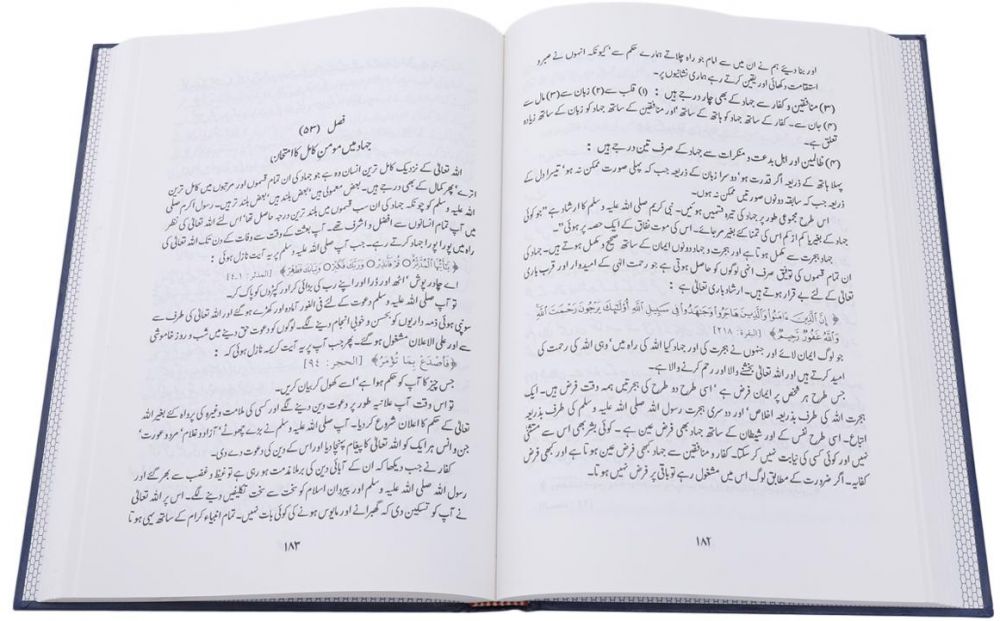 اور بنا دیئے ہم نے ان میں سے امام جو راہ چلاتے ہمارے حکم سے‘ کیونکہ انہوں نے صبر و
استقامت دکھائی اور یقین کرتے رہے ہماری نشانیوں پر۔
(۳) منافقین و کفار سے جہاد کے بھی چار درجے ہیں : (۱) قلب سے (۲) زبان سے (۳) مال سے
(۴) جان سے۔ کفار کے ساتھ جہاد کو ہاتھ کے ساتھ‘ اور منافقین کے ساتھ جہاد کو زبان کے ساتھ زیادہ
تعلق ہے۔
(۴) ظالمین اور اہل بدعت و منکرات سے جہاد کے صرف تین درجے ہیں :
پہلا ہاتھ کے ذریعہ اگر قدرت ہو‘ دوسرا زبان کے ذریعہ جب کہ پہلی صورت ممکن نہ ہو‘ تیسرا دل کے
ذریعہ جب کہ سابقہ دونوں صورتیں ممکن نہ ہوں۔
اس طرح مجموعی طور پر جہاد کی تیرہ قسمیں ہوئیں۔ نبی کریم صلی اللہ علیہ و سلم کا ارشاد ہے "جو کوئی
جہاد کے بغیر یا کم از کم اس کی تمنا کئے بغیر مر جائے۔ اس کی موت نفاق کے ایک حصہ پر ہوئی"۔
جہاد ہجرت سے مکمل ہوتا ہے اور ہجرت و جہاد دونوں ایمان کے ساتھ صحیح و مکمل ہوتے ہیں۔ جہاد کی
ان تمام قسموں کی توفیق صرف انہی لوگوں کو حاصل ہوتی ہے جو رحمت الٰہی کے امیدوار اور قرب باری
تعالیٰ کے لئے بے قرار ہوتے ہیں۔ ارشاد باری تعالیٰ ہے :
﴿ إِنَّ الَّذِينَ ءَامَنُوا وَالَّذِينَ هَاجَرُوا وَجَٰهَدُوا فِي سَبِيلِ اللَّهِ أُوْلَٰٓئِكَ يَرْجُونَ رَحْمَتَ اللَّهِ
وَاللَّهُ غَفُورٌ رَّحِيمٌ﴾ [البقرة: ٢١٨]
جو لوگ ایمان لائے اور جنہوں نے ہجرت کی اور جہاد کیا اللہ کی راہ میں‘ وہی اللہ کی رحمت کی
امید کرتے ہیں اور اللہ تعالیٰ بخشنے والا اور رحم کرنے والا ہے۔
جس طرح ہر شخص پر ایمان فرض ہے‘ اسی طرح دو طرح کی ہجرتیں ہمہ وقت فرض ہیں۔ ایک
ہجرت اللہ کی طرف بذریعہ اخلاص‘ اور دوسری ہجرت رسول اللہ صلی اللہ علیہ و سلم کی طرف بذریعہ
اتباع۔ اسی طرح نفس کے اور شیطان کے ساتھ جہاد بھی فرض عین ہے۔ کوئی بشر بھی اس سے مستثنیٰ
نہیں اور کوئی کسی کی نیابت نہیں کر سکتا۔ کفار و منافقین سے جہاد کبھی فرض عین ہوتا ہے اور کبھی فرض
کفایہ۔ اگر ضرورت کے مطابق لوگ اس میں مشغول رہے تو باقی پر فرض نہیں ہوتا۔
۱۸۲
فصل (۵۳)
جہاد میں مومن کامل کا امتحان
اللہ تعالیٰ کے نزدیک کامل ترین انسان وہ ہے جو جہاد کی ان تمام قسموں اور مرتبوں میں کامل ترین
اترے‘ پھر کمال کے بھی درجے ہیں۔ بعض معمولی ہیں‘ بعض بلند ہیں‘ بعض بلند تر ہیں۔ رسول اکرم صلی
اللہ علیہ و سلم کو چونکہ جہاد کی ان سب قسموں میں بلند ترین درجہ حاصل تھا‘ اس لئے اللہ تعالیٰ کی نظر
میں آپ تمام انسانوں سے افضل و اشرف تھے۔ آپ بعثت کے وقت سے وفات کے دن تک اللہ تعالیٰ کی
راہ میں پورا پورا جہاد کرتے رہے۔ جب آپ صلی اللہ علیہ و سلم پر یہ آیت نازل ہوئی :
﴿يَٰٓأَيُّهَا الْمُدَّثِّرُ ۝ قُمْ فَأَنذِرْ ۝ وَرَبَّكَ فَكَبِّرْ ۝ وَثِيَابَكَ فَطَهِّرْ﴾ [المدثر: ١-٤]
اے چادر پوش‘ اٹھ اور ڈرا اور اپنے رب کی بڑائی کر اور کپڑوں کو پاک کر۔
تو آپ صلی اللہ علیہ و سلم دعوت کے لئے فی الفور آمادہ اور کھڑے ہو گئے اور اللہ تعالیٰ کی طرف سے
سونپی ہوئی ذمہ داریوں کو بحسن و خوبی انجام دینے لگے۔ لوگوں کو دعوت حق دینے میں شب و روز خاموشی
سے اور علی الاعلان مشغول ہو گئے۔ پھر جب آپ پر یہ آیت کریمہ نازل ہوئی کہ :
﴿فَاصْدَعْ بِمَا تُؤْمَرُ﴾ [الحجر: ٩٤]
جس چیز کا آپ کو حکم ہوا ہے‘ اسے کھول کر بیان کریں۔
تو اس وقت آپ علانیہ طور پر دعوت دین دینے لگے اور کسی کی ملامت وغیرہ کی پرواہ کئے بغیر اللہ
تعالیٰ کے حکم کا اعلان شروع کر دیا۔ آپ صلی اللہ علیہ و سلم نے بڑے چھوٹے‘ آزاد و غلام‘ مرد و عورت‘
جن و انس ہر ایک کو اللہ تعالیٰ کا پیغام پہنچا دیا اور اس کے دین کی دعوت دے دی۔
کفار نے جب دیکھا کہ ان کے آبائی دین کی برملا مذمت ہو رہی ہے تو غیظ و غضب سے بھر گئے اور
رسول اللہ صلی اللہ علیہ و سلم اور پیروان اسلام کو سخت سے سخت تکلیفیں دینے لگے۔ اس پر اللہ تعالیٰ
نے آپ کو تسکین دی کہ گھبرانے اور مایوس ہونے کی کوئی بات نہیں۔ تمام انبیاء کرام کے ساتھ یہی ہوتا
۱۸۳